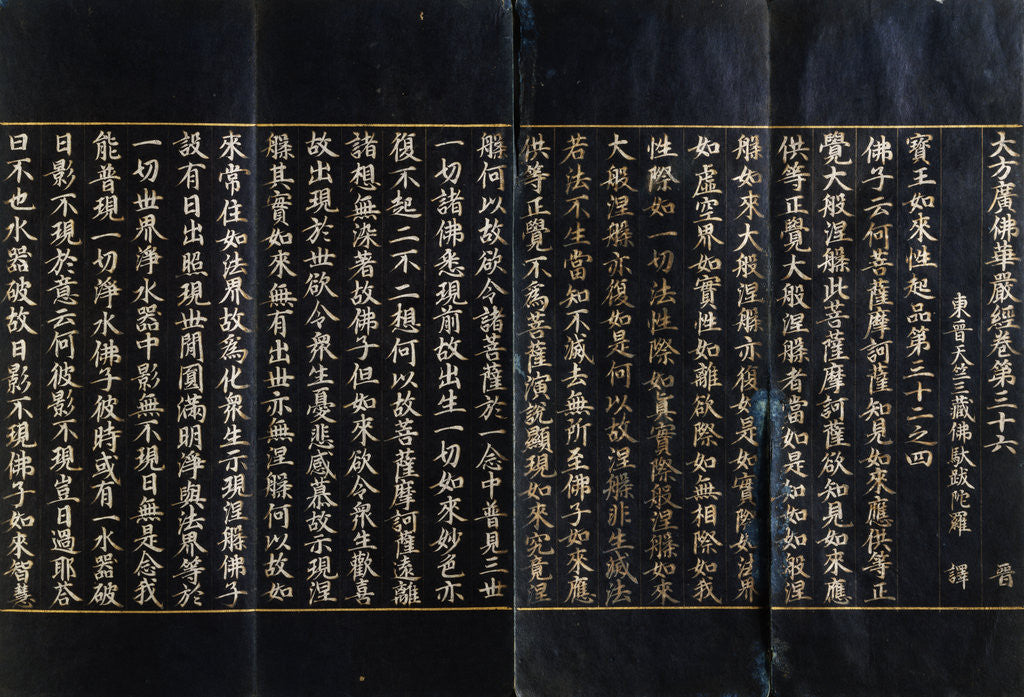 大方廣佛華嚴經卷第三十六 晉
東晉天竺三藏佛馱跋陀羅 譯
寶王如來性起品第三十二之四
佛子云何菩薩摩訶薩知見如來應供等正
覺大般涅槃此菩薩摩訶薩欲知見如來應
供等正覺大般涅槃者當如是知如如般涅
槃如來大般涅槃亦復如是如實際如法界
如虛空界如實性如離欲際如無相際如我
性際如一切法性際如真實際般涅槃如來
大般涅槃亦復如是何以故涅槃非生滅法
若法不生當知不滅去無所至佛子如來應
供等正覺不為菩薩演說顯現如來究竟涅
槃何以故欲令諸菩薩於一念中普見三世
一切諸佛悉現前故出生一切如來妙色亦
復不起二不二想何以故菩薩摩訶薩遠離
諸想無染著故佛子但如來欲令眾生歡喜
故出現於世欲令眾生憂悲感慕故示現涅
槃其實如來無有出世亦無涅槃何以故如
來常住如法界故為化眾生示現涅槃佛子
設有日出照現世閒圓滿明淨與法界等於
一切世界淨水器中影無不現日無是念我
能普現一切淨水佛子彼時或有一水器破
日影不現於意云何彼影不現豈日過耶答
曰不也水器破故日影不現佛子如來智慧